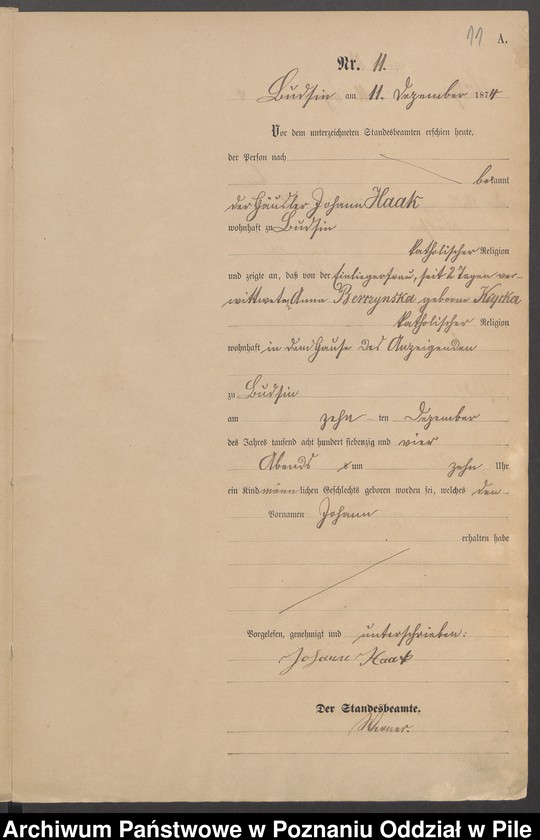 11 A.
Nr. 11.
Budsin am 11. Dezember 1874
Vor dem unterzeichneten Standesbeamten erschien heute,
der Person nach
bekannt
der Häusler Johann Haak
wohnhaft zu Budsin
katholischer Religion
und zeigte an, daß von der Einliegerfrau, seit 2 Tagen ver-
wittwete Anna geborene
katholischer Religion
wohnhaft in dem Hause des Anzeigenden
zu Budsin
am zehn ten Dezember
des Jahres tausend acht hundert siebenzig und vier
Abends um zehn Uhr
ein Kind männlichen Geschlechts geboren worden sei, welches den
Vornamen Johann
erhalten habe
Vorgelesen, genehmigt und unterschrieben:
Johann Haak
Der Standesbeamte.
Werner.
Archiwum Państwowe w Poznaniu Oddział w Pile